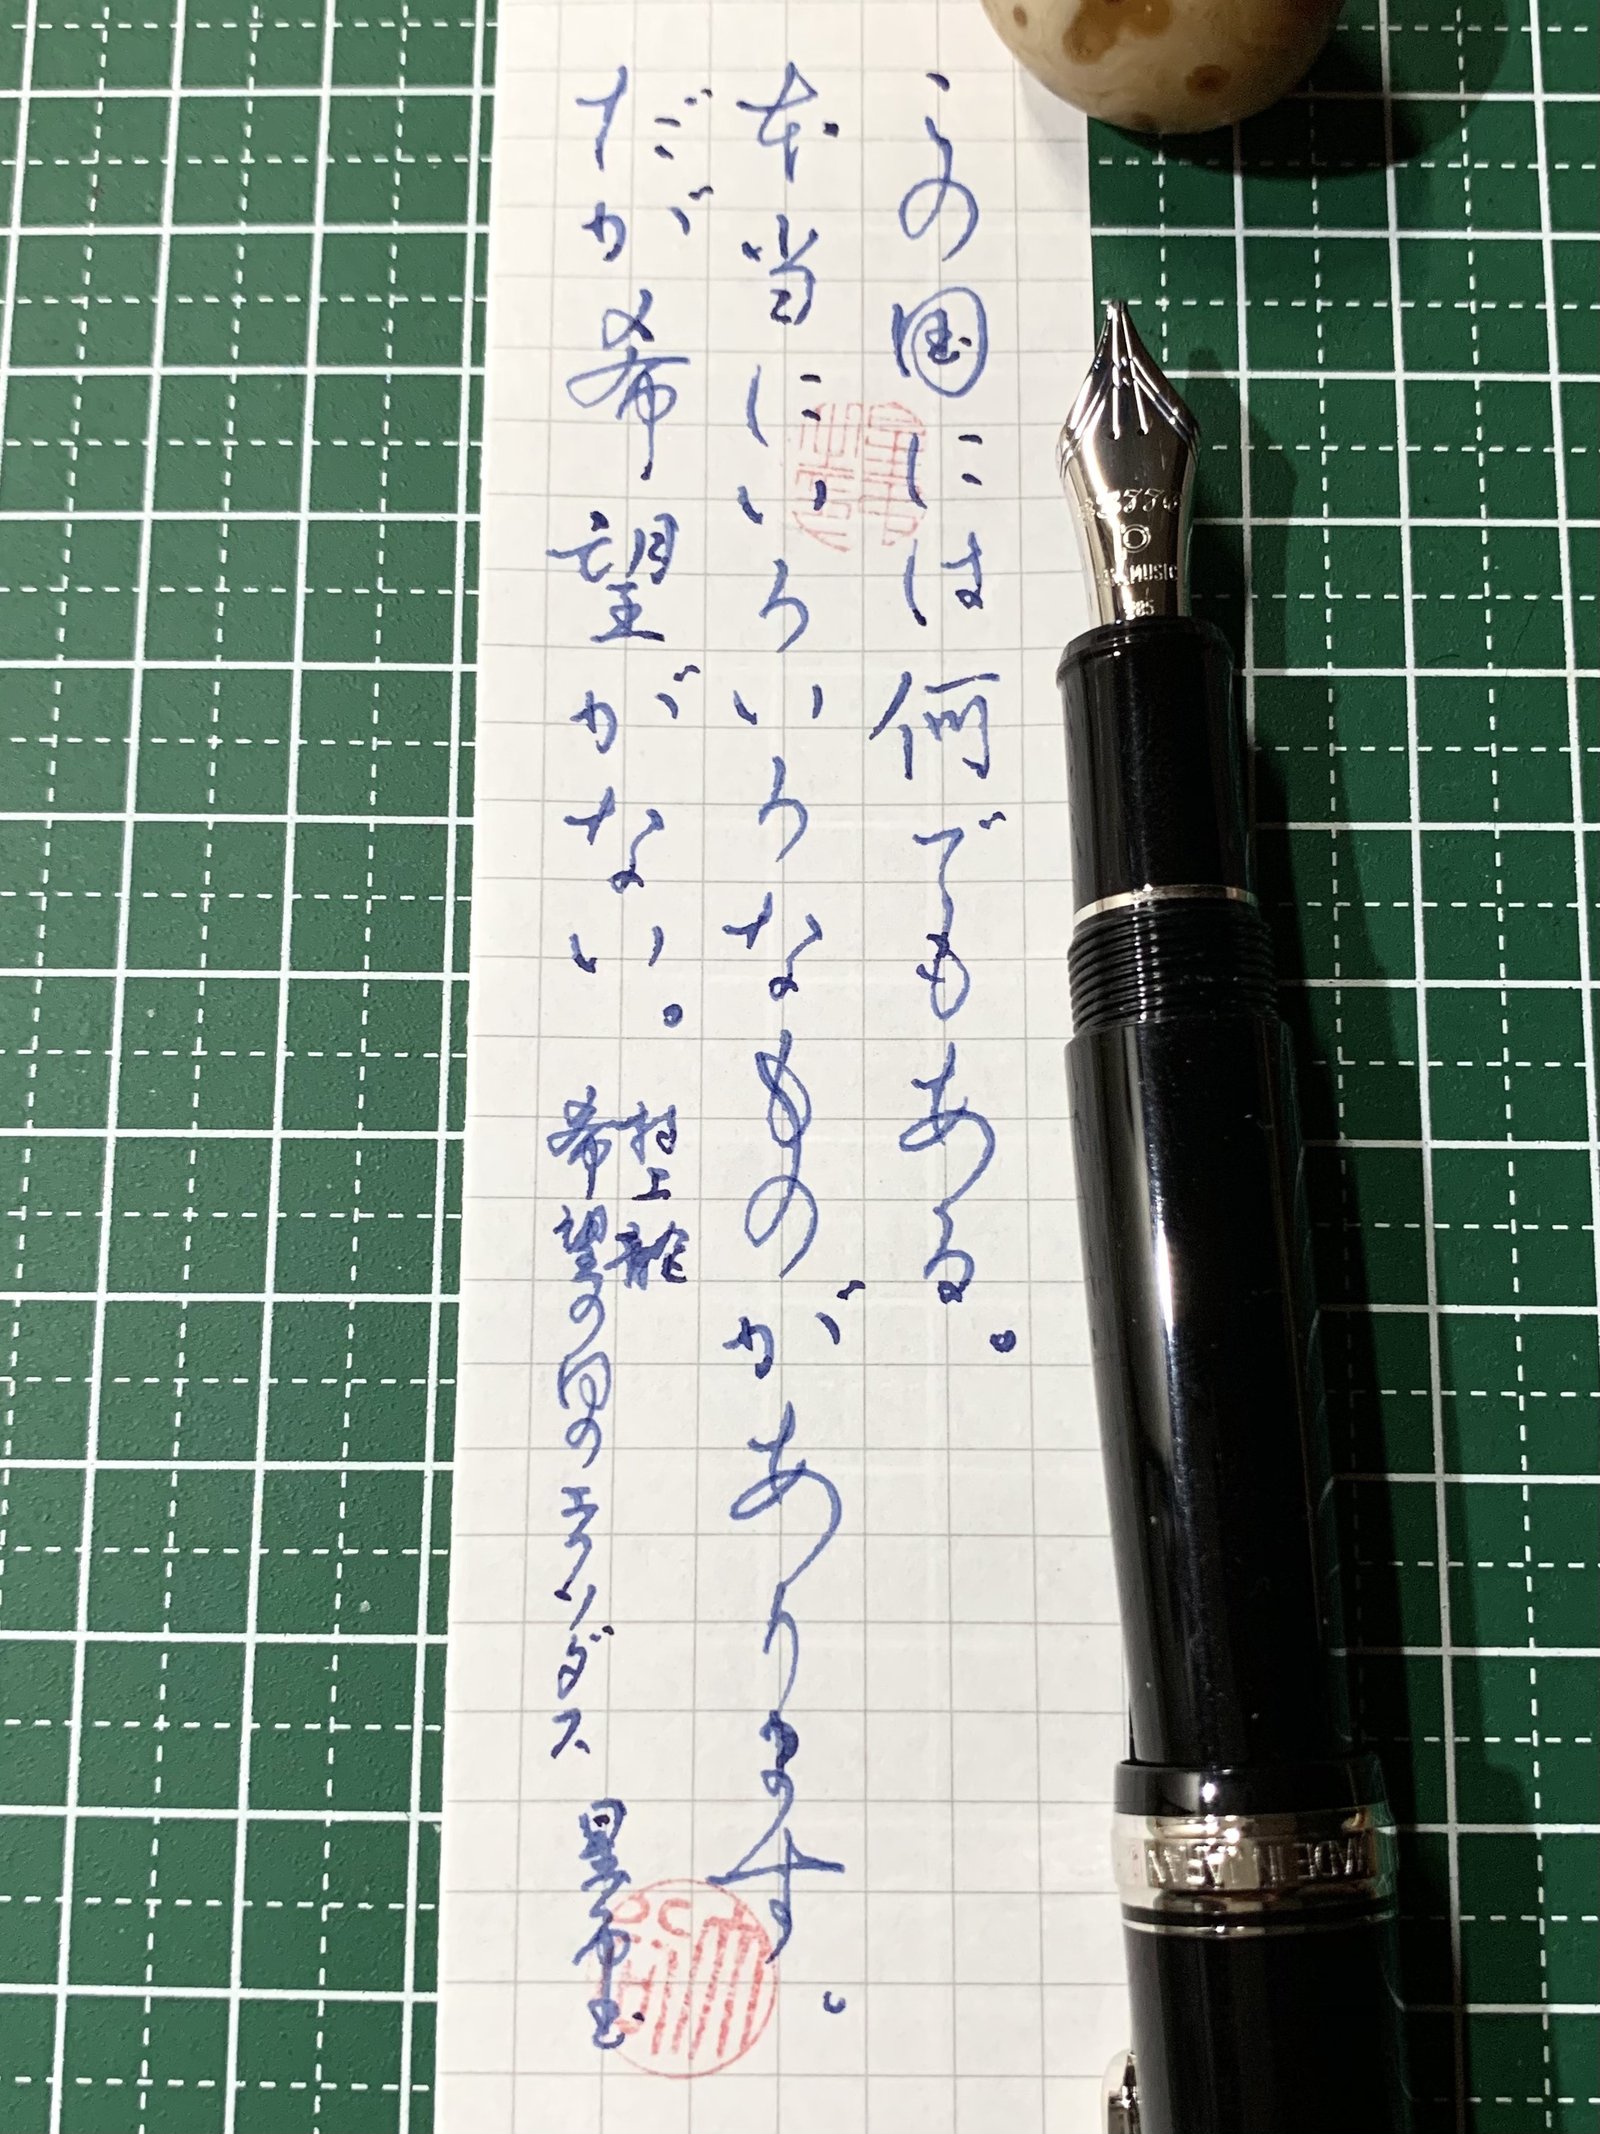 この国には何でもある。
本当にいろいろなものがあります。
だが希望がない。
村上龍
希望の国のエクソダス
MUSIC
MADE IN JAPAN